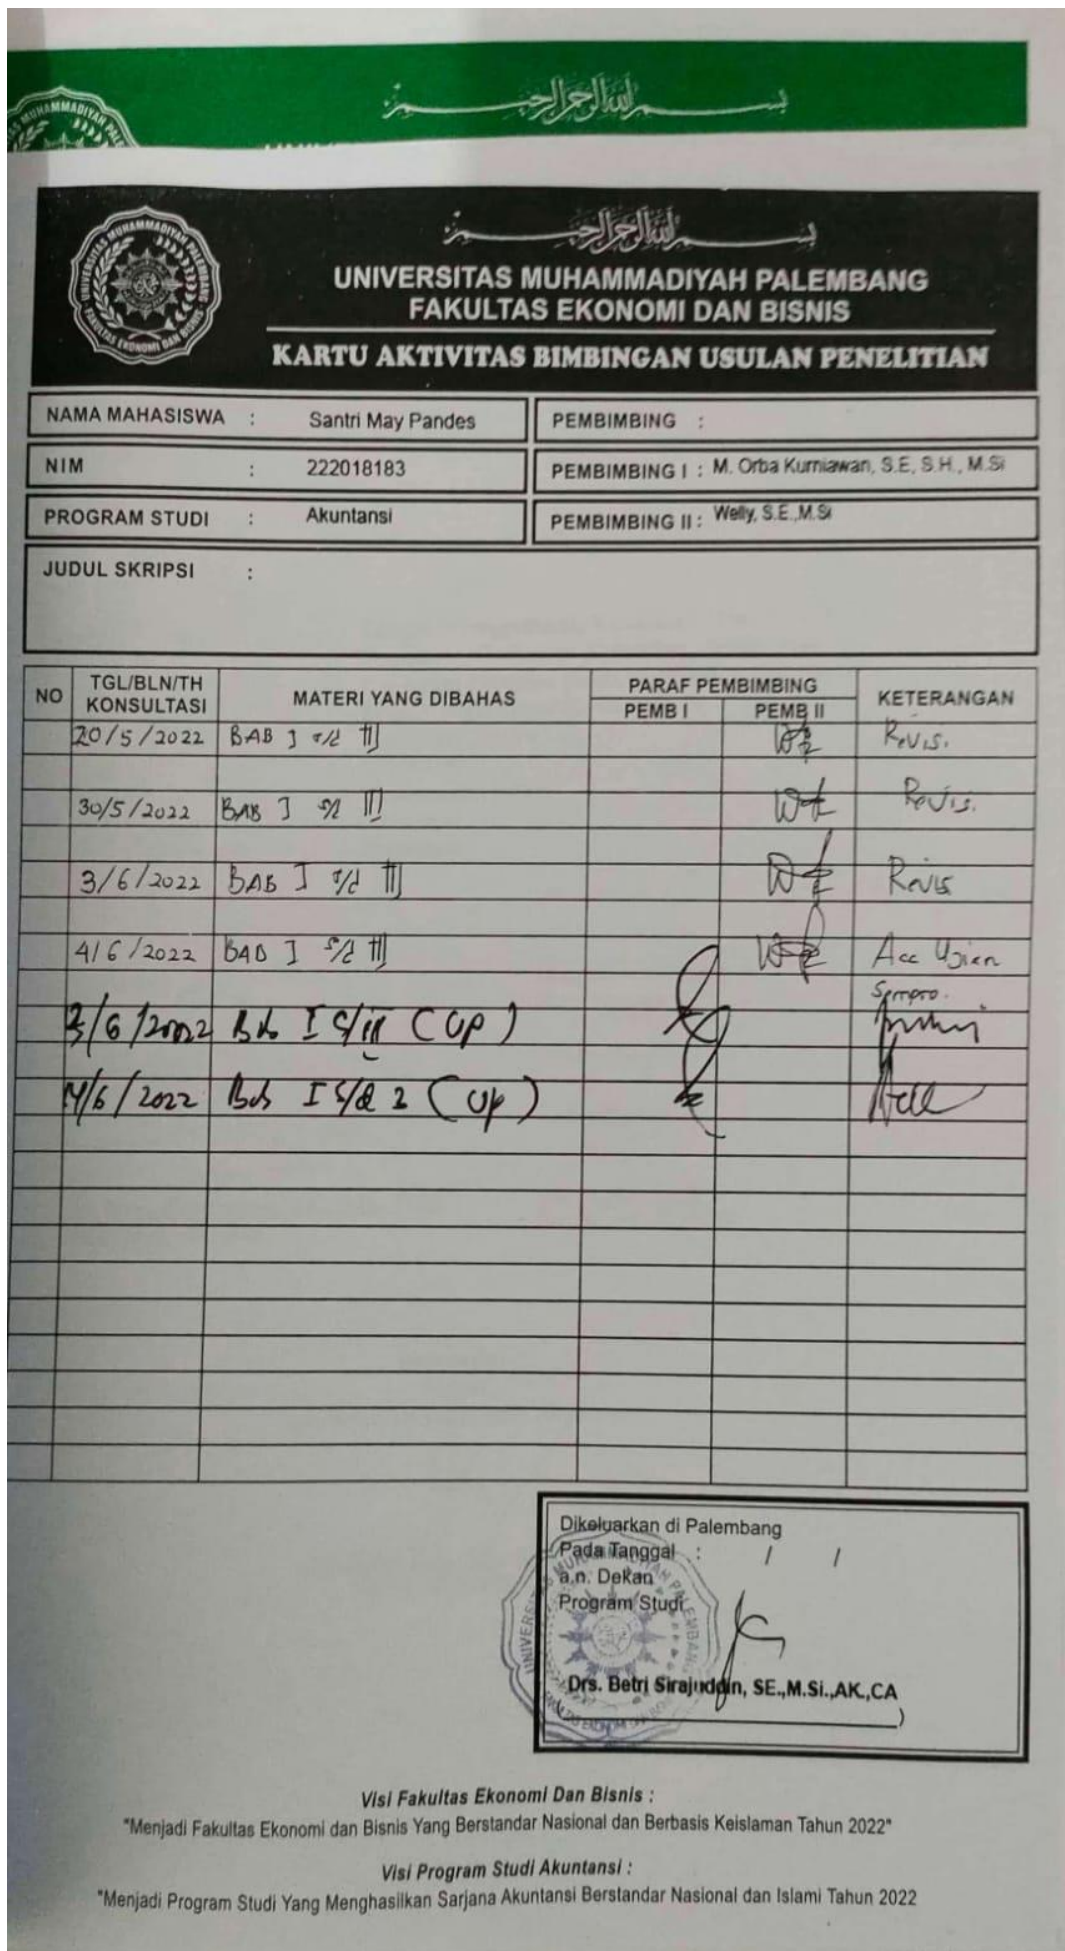 بسم الله الرحمن الرحيم
بسم الله الرحمن الرحيم
UNIVERSITAS MUHAMMADIYAH PALEMBANG
FAKULTAS EKONOMI DAN BISNIS
KARTU AKTIVITAS BIMBINGAN USULAN PENELITIAN
NAMA MAHASISWA : Santri May Pandes PEMBIMBING :
NIM : 222018183 PEMBIMBING I : M. Orba Kurniawan, S.E, S.H., M.Si
PROGRAM STUDI : Akuntansi PEMBIMBING II : Welly, S.E.,M.Si
JUDUL SKRIPSI :
NO TGL/BLN/TH KONSULTASI MATERI YANG DIBAHAS PARAF PEMBIMBING KETERANGAN
PEMB I PEMB II
20/5/2022 BAB I s/d III Revis.
30/5/2022 BAB I s/d III Revis.
3/6/2022 BAB I s/d III Revis
4/6/2022 BAB I s/d III Acc Ujian
Sempro.
/6/2022 Bab I s/d III (UP)
14/6/2022 Bab I s/d 3 (UP)
Dikeluarkan di Palembang
Pada Tanggal : / /
a.n. Dekan
Program Studi
Drs. Betri Sirajuddin, SE.,M.Si.,AK.,CA
)
Visi Fakultas Ekonomi Dan Bisnis :
"Menjadi Fakultas Ekonomi dan Bisnis Yang Berstandar Nasional dan Berbasis Keislaman Tahun 2022"
Visi Program Studi Akuntansi :
"Menjadi Program Studi Yang Menghasilkan Sarjana Akuntansi Berstandar Nasional dan Islami Tahun 2022